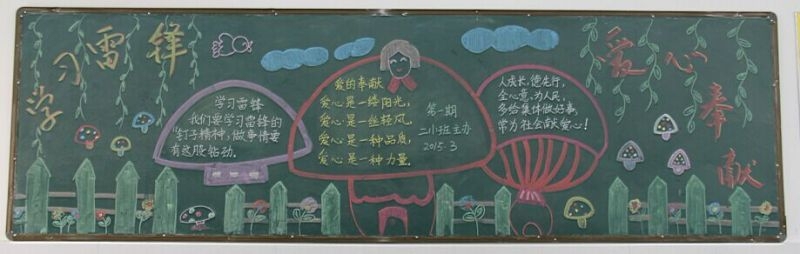 学习雷锋
学习雷锋
我们要学习雷锋的
钉子精神，做事情要
有这股钻劲。
爱的奉献
爱心是一缕阳光，
爱心是一丝轻风，
爱心是一种品质，
爱心是一种力量。
第一期
二(1)班主办
2015.3
人成长，德先行，
全心意，为人民，
多给集体做好事，
常为社会献爱心！
爱心奉献